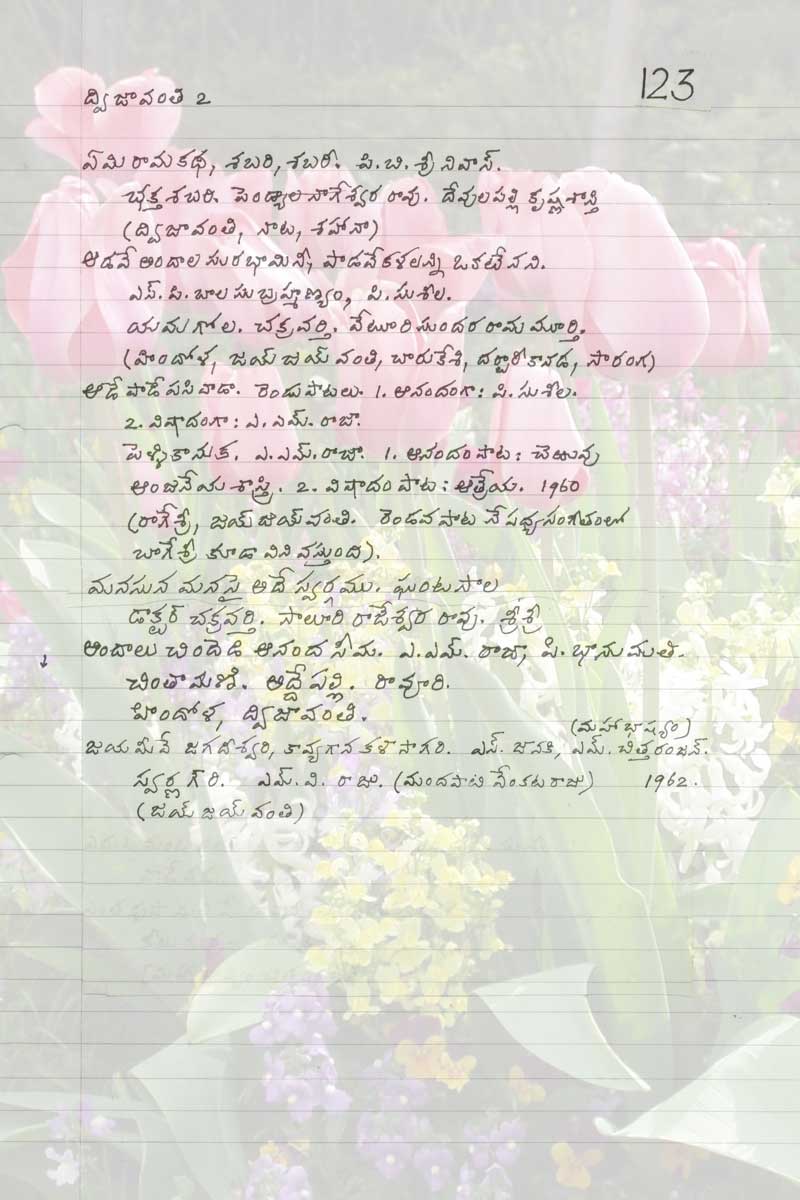 ద్విజావంతి 2
123
ఏమి రామకథ, శబరి, శబరీ. పి.బి.శ్రీనివాస్.
భక్త శబరి. పెండ్యాల నాగేశ్వర రావు. దేవులపల్లి కృష్ణశాస్త్రి
(ద్విజావంతి, నాట, శహానా)
ఆడవే అందాల సురభామినీ, పాడవేకళలన్నీ ఒకటేనని.
ఎస్.పి.బాలసుబ్రహ్మణ్యం, పి.సుశీల.
యమగోల. చక్రవర్తి. వేటూరి సుందర రామ మూర్తి.
(హిందోళ, జయ్ జయ్ వంతి, చారుకేశి, దర్బారీకానడ, సారంగ)
ఆడే పాడే పసివాడా. రెండు పాటలు. 1. ఆనందంగా: పి.సుశీల.
2. విషాదంగా: ఎ. ఎమ్. రాజా.
పెళ్ళికానుక. ఎ.ఎమ్.రాజా. 1. ఆనందం పాట: చెఱువు
ఆంజనేయ శాస్త్రి. 2. విషాదం పాట: ఆత్రేయ. 1960
(రాగేశ్రీ, జయ్ జయ్ వంతి. రెండవ పాట నేపథ్యసంగీతంలో
బాగేశ్రీ కూడా వినివస్తుంది).
మనసున మనసై అదే స్వర్గము. ఘంటసాల
డాక్టర్ చక్రవర్తి. సాలూరి రాజేశ్వర రావు. శ్రీశ్రీ
↓ అందాలు చిందెడి ఆనందసీమ. ఎ.ఎమ్. రాజా, పి.భానుమతి.
చింతామణి. అద్దేపల్లి. రావూరి.
హిందోళ, ద్విజావంతి.
(మహాభాష్యం)
జయమీవే జగదీశ్వరి, కావ్యగాన కళాసాగరి. ఎస్. జానకి, ఎమ్. చిత్తరంజన్.
స్వర్ణ గౌరి. ఎమ్. వి. రాజు. (మందపాటి వేంకటరాజు) 1962.
(జయ్ జయ్ వంతి)